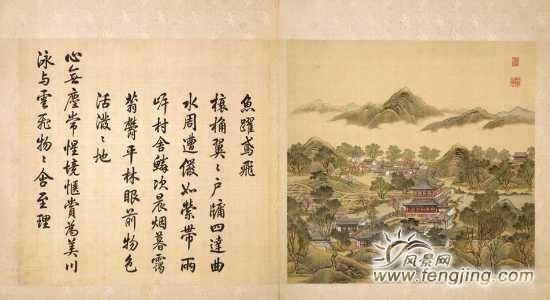 魚躍鳶飛
榱桷翼〻戶牖四達曲
水周遭儼如縈帶兩
岸村舍鱗次晨烟暮靄
蓊鬱平林眼前物色
活潑〻地
心無塵常惺境愜賞為美川
泳與雲飛物〻含至理
风景网
www.fengjing.com